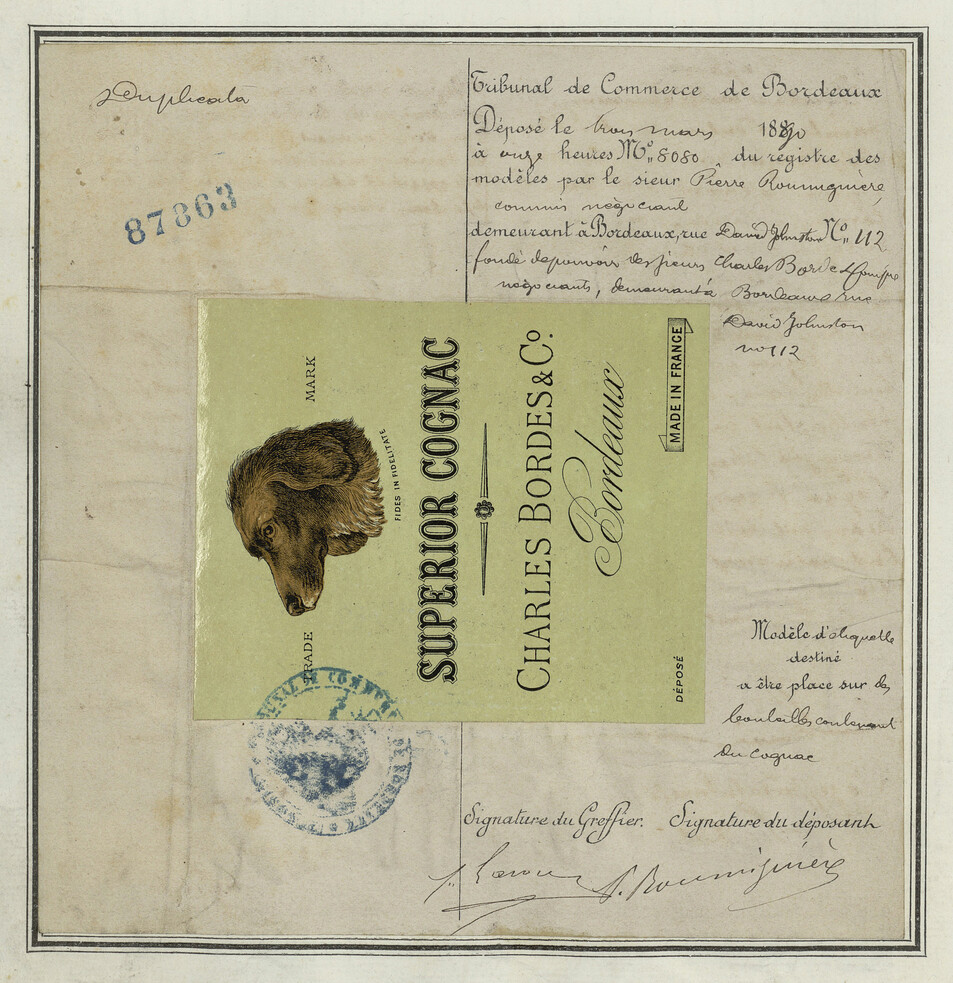 Duplicata
87863
Tribunal de Commerce de Bordeaux
Déposé le trois mars 1890
à onze heures N° 8080 du registre des
modèles par le sieur Pierre Roumiguière,
commis négociant
demeurant à Bordeaux, rue David Johnston N° 112
fondé de pouvoirs des sieurs Charles Bordes & Compie
négociants, demeurant à Bordeaux rue
David Johnston
no 112
TRADE MARK
FIDES IN FIDELITATE
SUPERIOR COGNAC
CHARLES BORDES & Co.
Bordeaux
MADE IN FRANCE
DÉPOSÉ
Modèle d'étiquette
destiné
a être place sur des
bouteilles contenant
du cognac
TRIBUNAL DE COMMERCE DE BORDEAUX
Signature du Greffier. Signature du déposant
P. Roumiguière